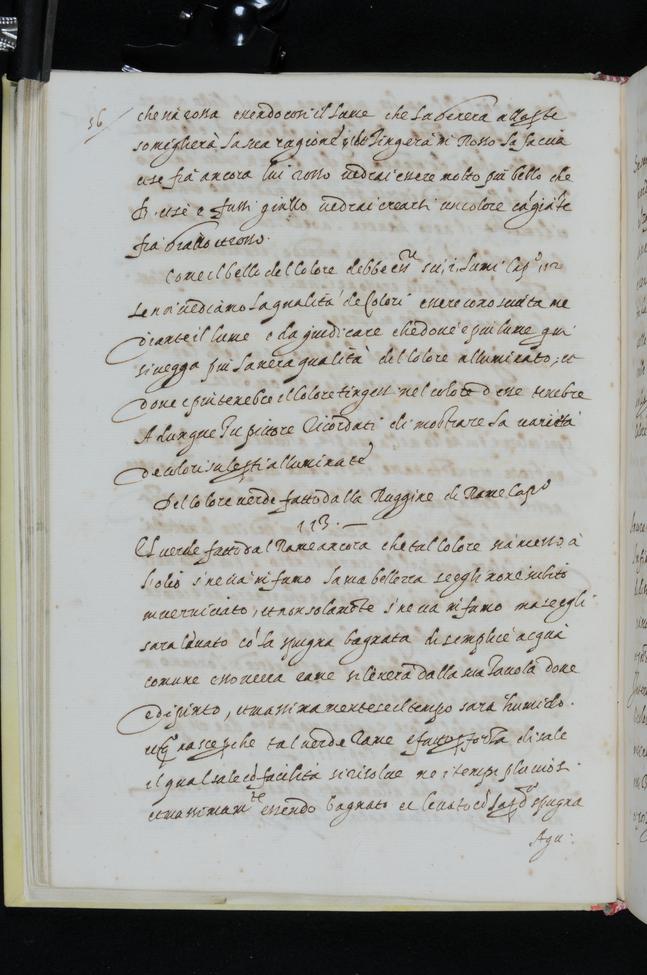 56
che sia rossa essendo così il lume che la genera all'oste
somiglierà la sua ragione, et tingerà di Rosso la faccia
e se fia ancora lui rosso vedrai essere molto più bello che
p.ª e se e fussi giallo vedrai crearsi un colore cāgiāte
fra giallo et rosso.
Come il bello del Colore debbe ess.re su i lumi Cap.º 112
se noi vediamo la qualità de Colori essere conosciuta me
diante il lume e da giudicare che dove e più lume qui
si vegga più la vera qualità del Colore alluminato, et
dove e più tenebre il Colore tingesi nel colore d'esse tenebre
Adunque Tu pittore Ricordati di mostrare la varietà
de colori su le parti alluminate
Del Colore verde fatto dalla Ruggine di Rame Cap.º
113. —
Il verde fatto dal Rame ancora che tal Colore sia messo à
l'olio s'ne và in fumo la sua bellezza se egli non è subito
inverniciato, et non solamēte s'ne va in fumo ma se egli
sarà lavato cō la spugna bagnata di semplice acqua
comune esso verde rame si leverà dalla sua Tavola dove
e dipinto, et massimamente se il tempo sarà humido.
et q.º nasce perche tal verde Rame e fatto p forza di sale
il qual sale cō facilità si risolve ne i tempi piuviosi.
et massimam.te essendo bagnato et levato cō la p.ª spugna
Agu: